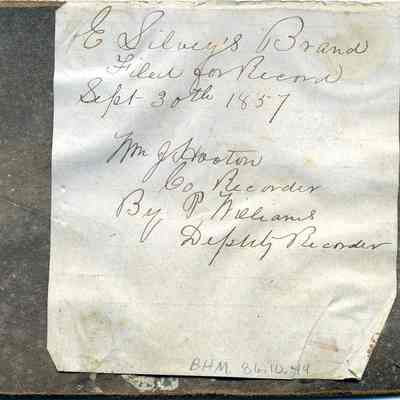 E Silvey's Brand
Filed for Record
Sept 30th 1857
Wm J Hooton
Co Recorder
By P Williams
Deputy Recorder
BHM. 86.10.44